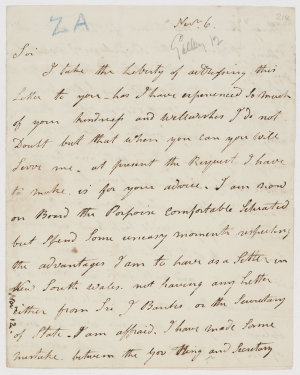 ZA
Novr. 6.
214
Sir
I take the Liberty of adressing this
Letter to you - has I have experienced So much
of your kindness and wellwishes I do not
Doubt but that when you can you will
Serve me - at present the Request I have
to make is for your advise - I am now
on Board the Porpoise Comfortable Situated
but Spend Some uneasy moments respecting
the advantages I am to have as a Settler in
New South Wales. not having any Letter
either from Sir J Banks or the Secretary
of State - I am affraid. I have made Some
mistake between the Gov King and Secretary